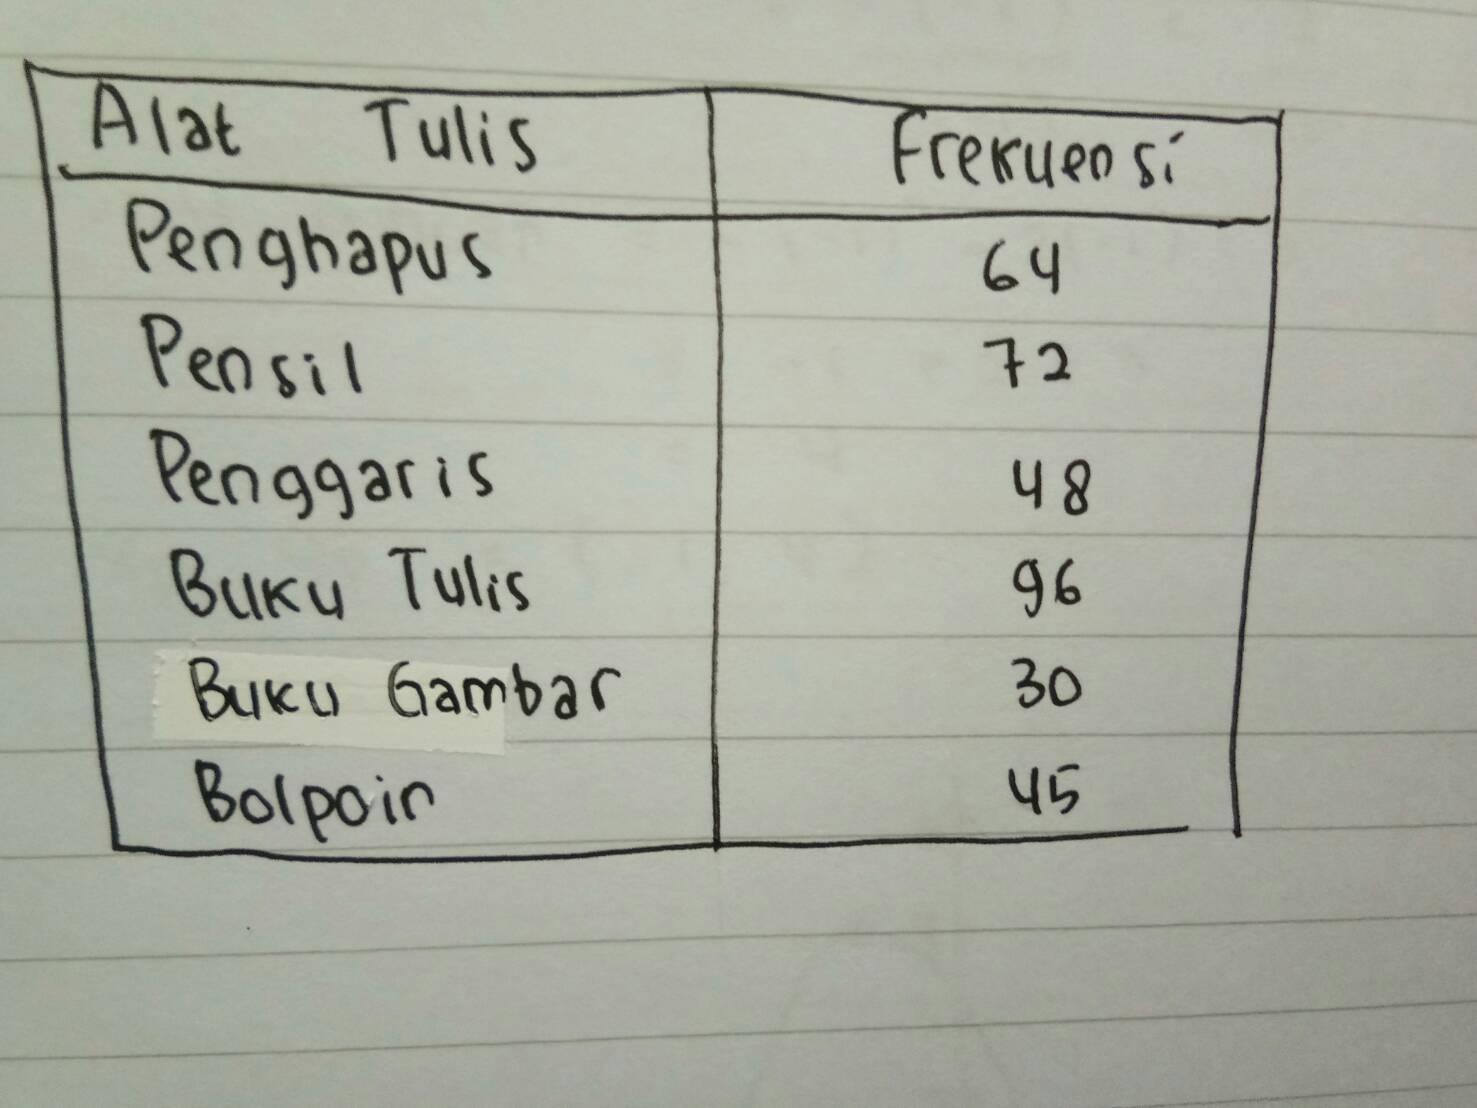 Alat Tulis Frekuensi
Penghapus 64
Pensil 72
Penggaris 48
Buku Tulis 96
Buku Gambar 30
Bolpoin 45